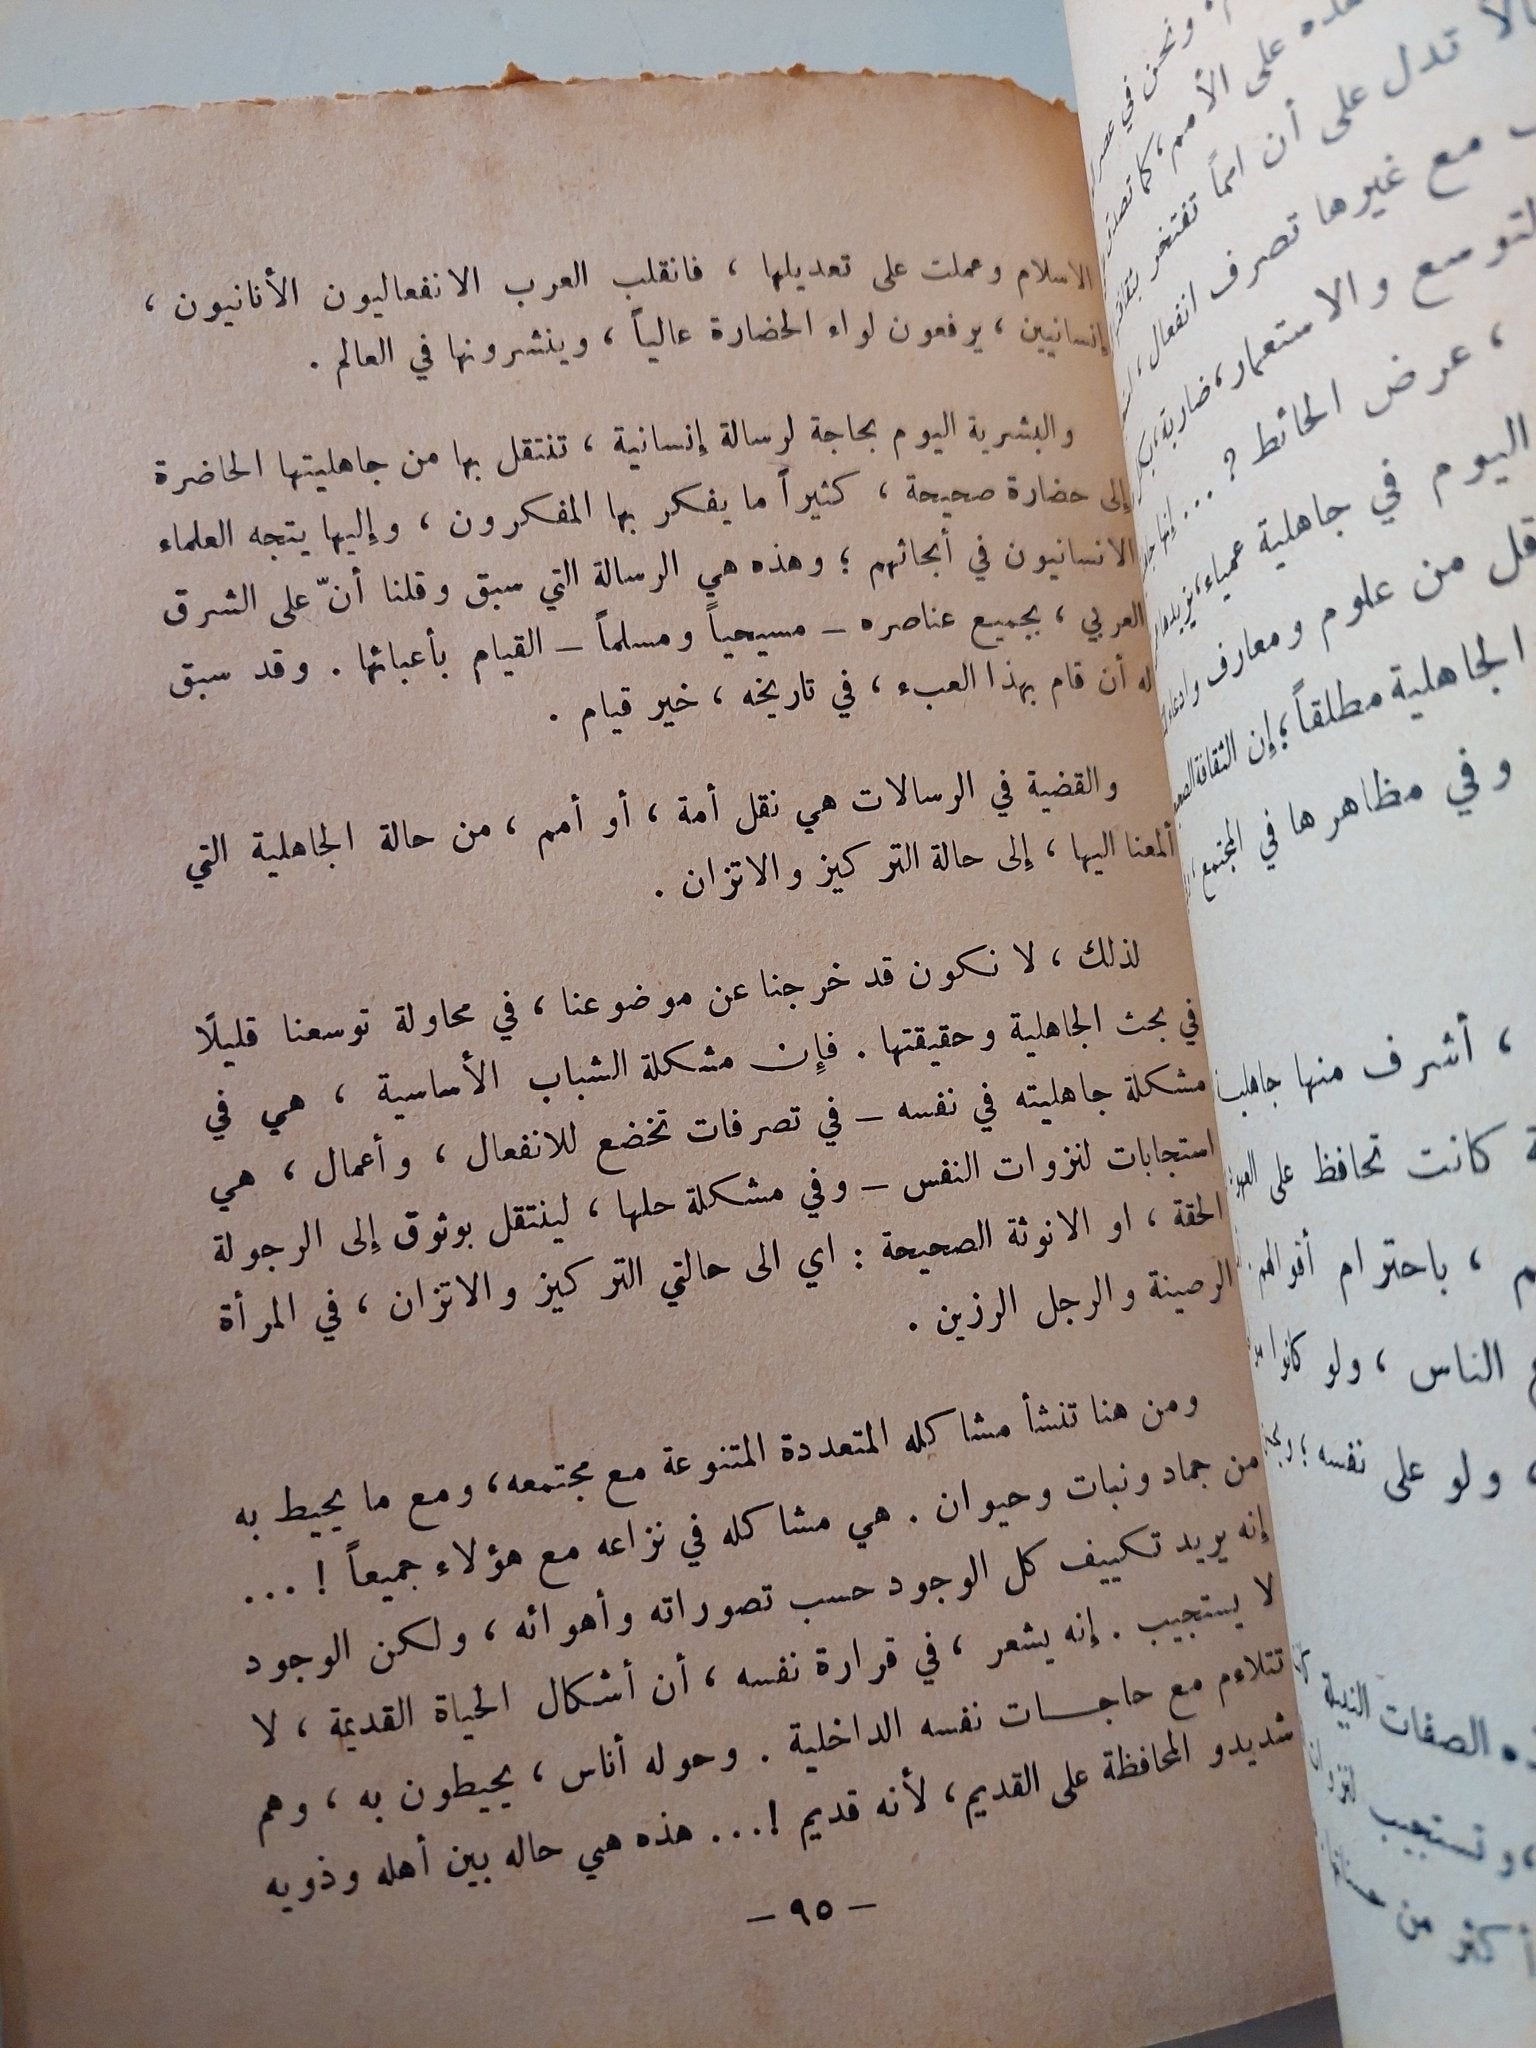 الاسلام وعملت على تعديلها ، فانقلب العرب الانفعاليون الأنانيون ،
إنسانيين ، يرفعون لواء الحضارة عالياً ، وينشرونها في العالم .
والبشرية اليوم بحاجة لرسالة إنسانية ، تنتقل بها من جاهليتها الحاضرة
إلى حضارة صحيحة ، كثيراً ما يفكر بها المفكرون ، وإليها يتجه العلماء
الانسانيون في أبحاثهم ؛ وهذه هي الرسالة التي سبق وقلنا أنّ على الشرق
العربي ، بجميع عناصره – مسيحياً ومسلماً – القيام بأعبائها . وقد سبق
له أن قام بهذا العبء ، في تاريخه ، خير قيام .
والقضية في الرسالات هي نقل أمة ، أو أمم ، من حالة الجاهلية التي
ألمعنا اليها ، إلى حالة التركيز والاتزان .
لذلك ، لا نكون قد خرجنا عن موضوعنا ، في محاولة توسعنا قليلًا
في بحث الجاهلية وحقيقتها . فإن مشكلة الشباب الأساسية ، هي في
مشكلة جاهليته في نفسه – في تصرفات تخضع للانفعال ، وأعمال ، هي
استجابات لنزوات النفس – وفي مشكلة حلها ، لينتقل بوثوق إلى الرجولة
الحقة ، او الانوثة الصحيحة : اي الى حالتي التركيز والاتزان ، في المرأة
الرصينة والرجل الرزين .
ومن هنا تنشأ مشاكله المتعددة المتنوعة مع مجتمعه، ومع ما يحيط به
من جماد ونبات وحيوان . هي مشاكله في نزاعه مع هؤلاء جميعاً ! ...
إنه يريد تكييف كل الوجود حسب تصوراته وأهوائه ، ولكن الوجود
لا يستجيب . إنه يشعر ، في قرارة نفسه ، أن أشكال الحياة القديمة ، لا
تتلاءم مع حاجات نفسه الداخلية . وحوله أناس ، يحيطون به ، وهم
شديدو المحافظة على القديم، لأنه قديم !... هذه هي حاله بين أهله وذويه
– ٩٥ –
ونحن في
على الأمم ، كما
تدل على أن امماً تفتخر
مع غيرها تصرف انفعال ،
والاستعمار، ضاربة،
، عرض الحائط ? ... إنها
اليوم في جاهلية عمياء،
من علوم ومعارف
الجاهلية مطلقاً ؛ إن الثقافة
وفي مظاهرها في المجتمع
، أشرف منها
كانت تحافظ على
، باحترام أقوالهم
الناس ، ولو كانوا
، ولو على نفسه ؛
الصفات النبيلة
، وتستجيب
أكثر من